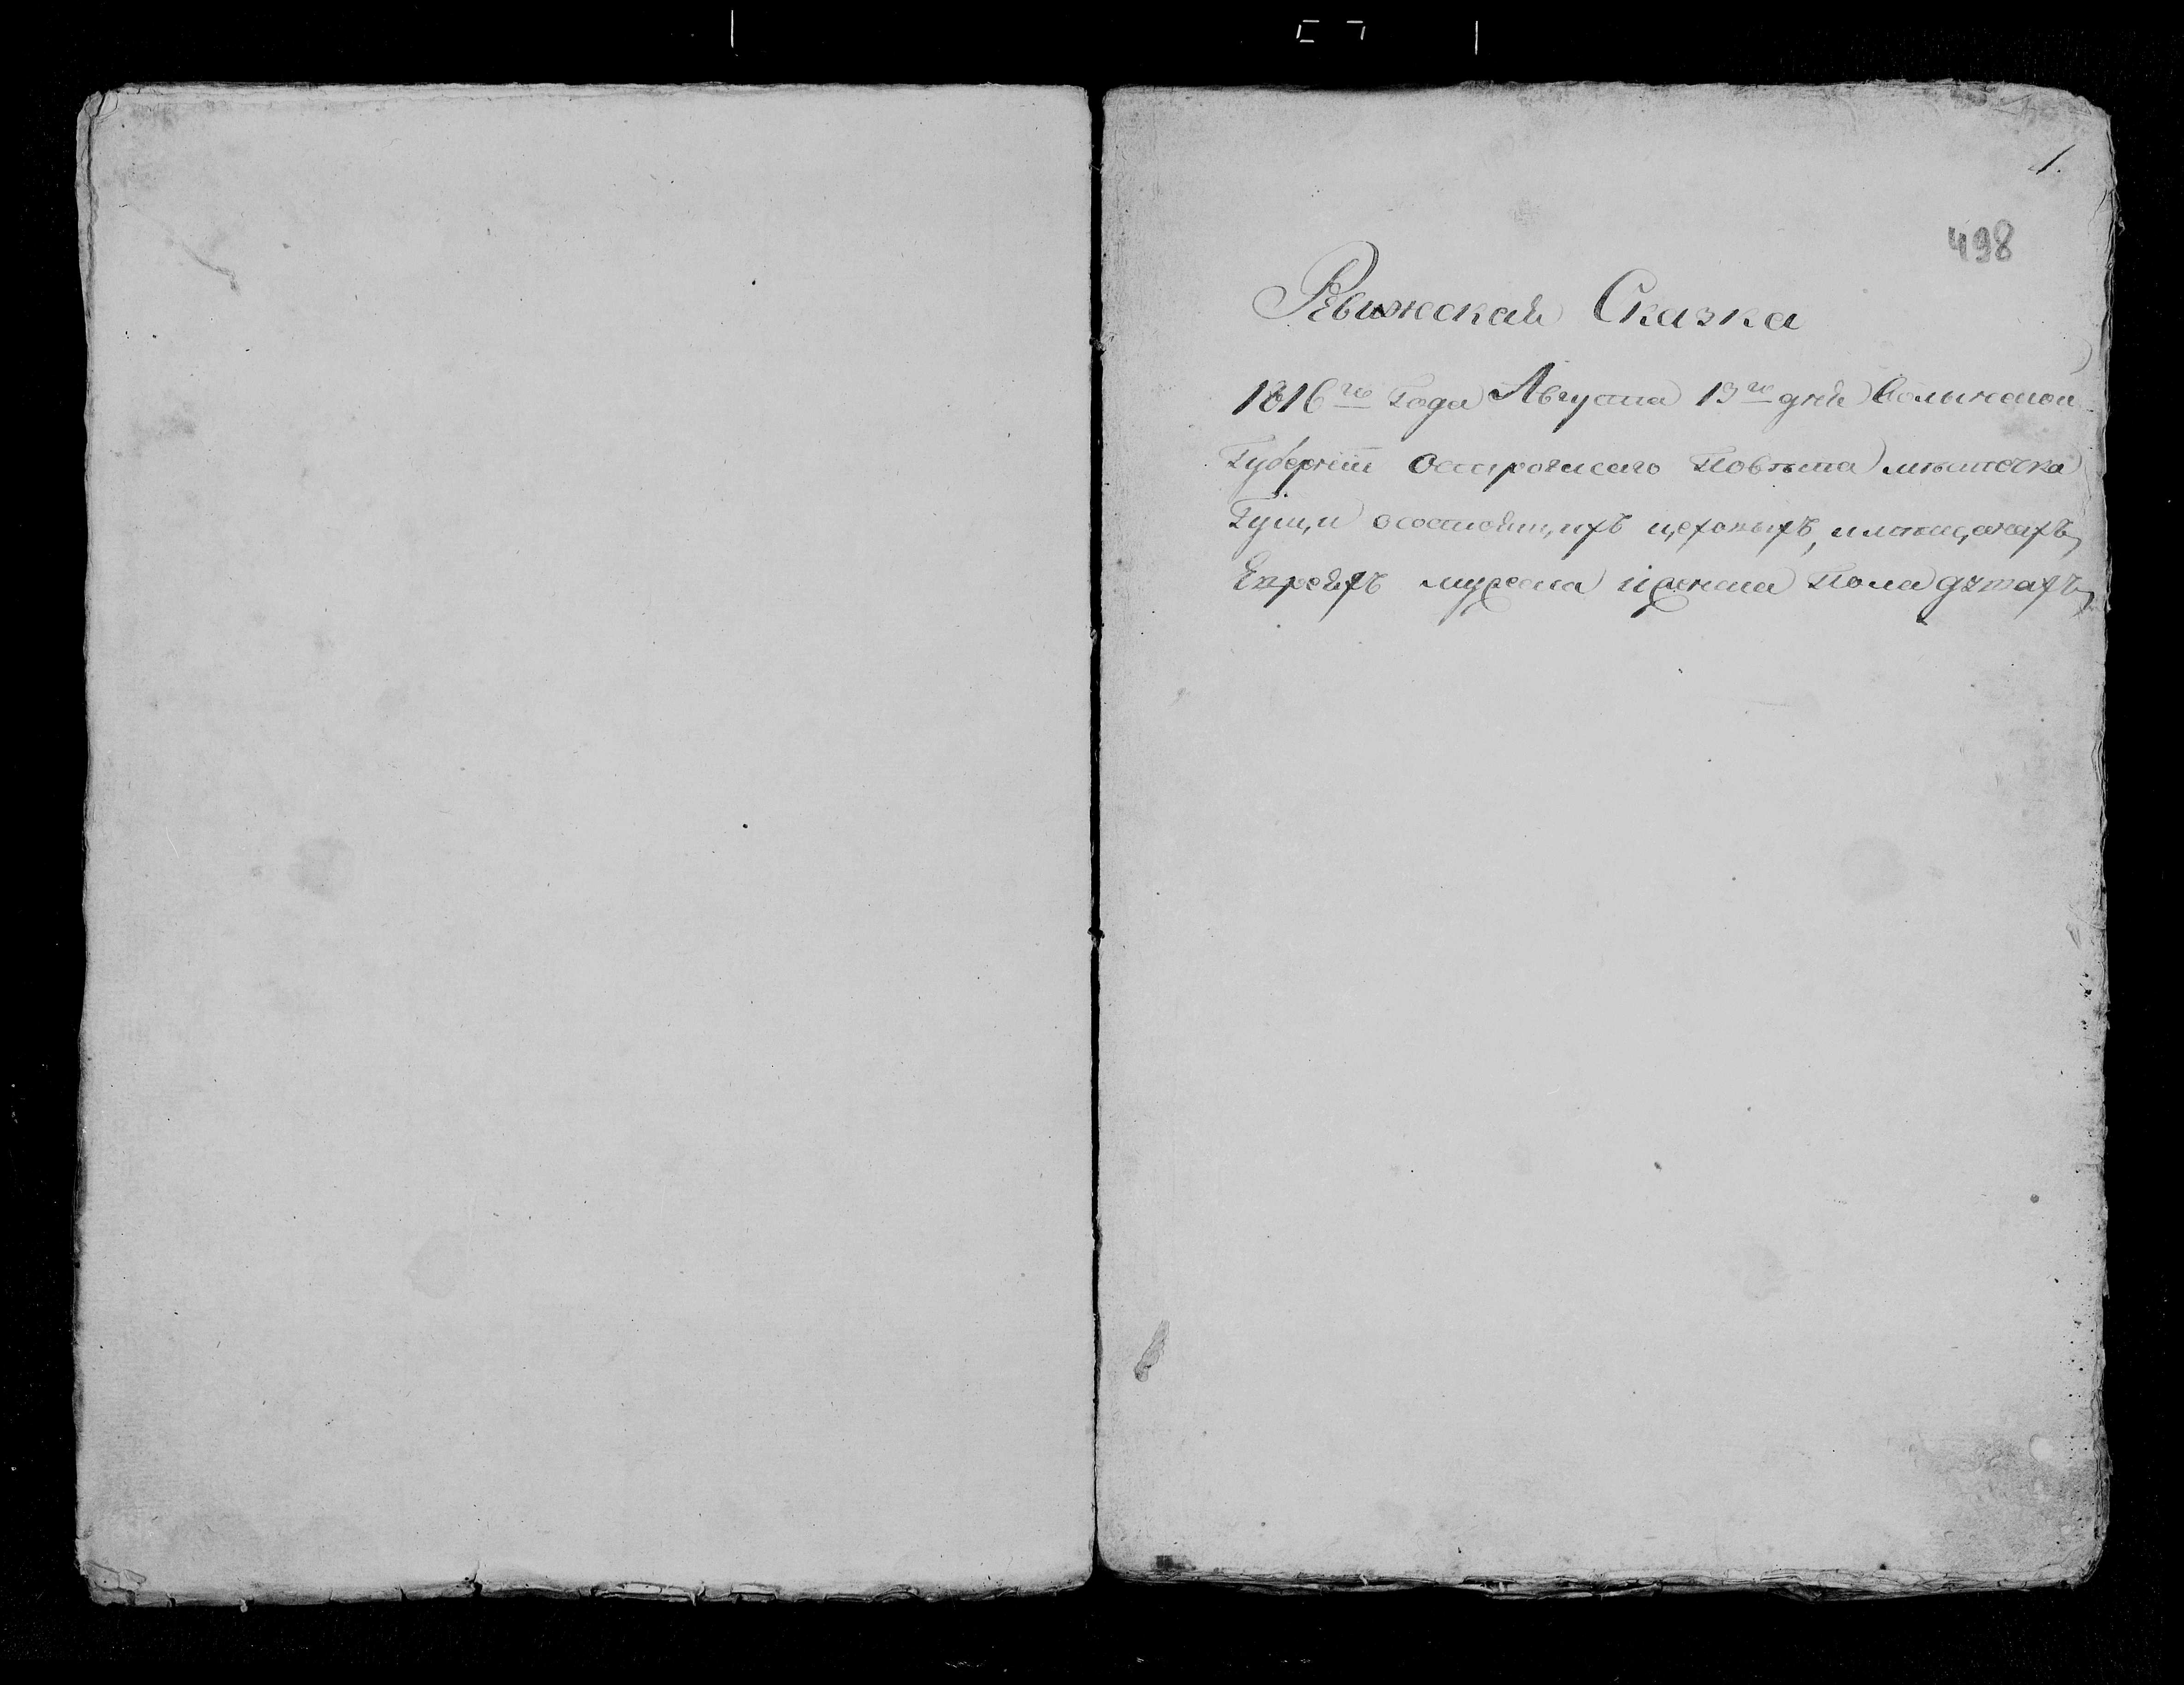 1.
498
Ревижская Сказка
1816го Года Августа 13го дня Волынской
Губернiи Острогскаго Повѣта мѣстечка
Гущи осостоящихъ цеховыхъ, имѣщанахъ
Евреяхъ мужеска iженска Пола душахъ